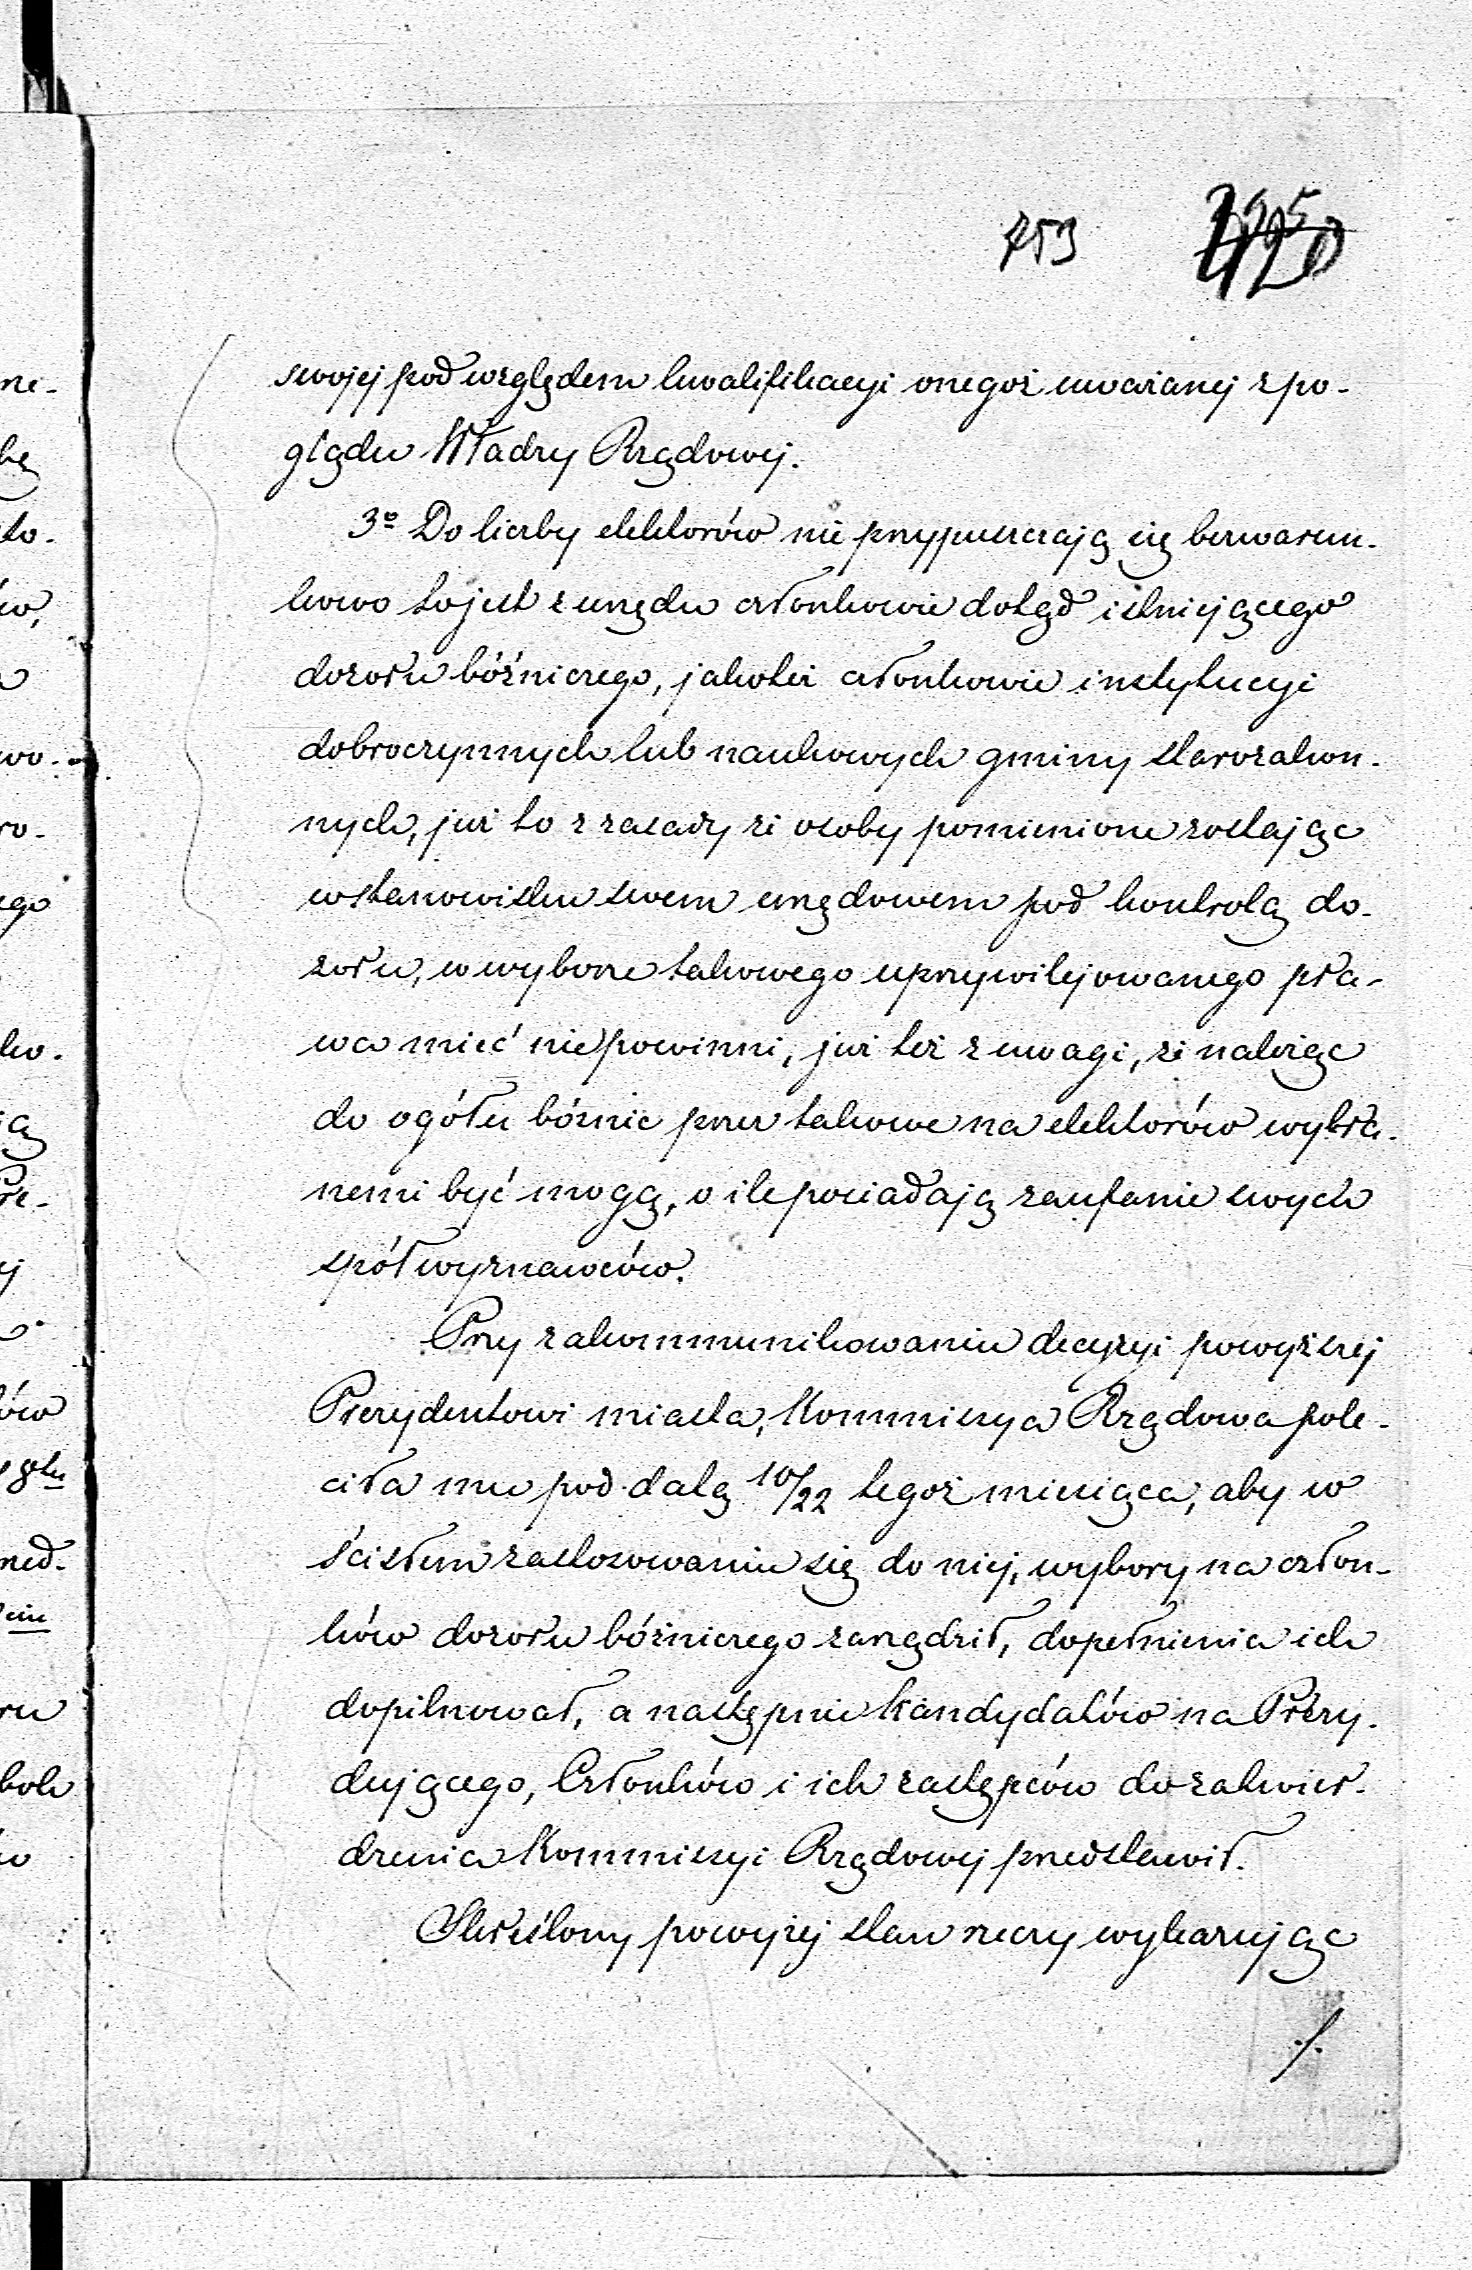 453
swojej pod względem kwalifikacyi onegoż uważanej z po-
glądu Władzy Rządowej.
3º Do liczby elektorów nie przypuszczają się bezwarun-
kowo to jest z urzędu członkowie dotąd istniejącego
dozoru bóźniczego, jakoteż członkowie instytucyi
dobroczynnych lub naukowych gminy starozakon-
nych, już to z zasady że osoby pomienione zostając
w stanowisku swem urzędowem pod kontrolą do-
zoru, w wyborze takowego uprzywilejowanego pra-
wa mieć nie powinni, już też z uwagi, że należąc
do ogółu bóżnic przez takowe na elektorów wybra-
nemi być mogą, o ile posiadają zaufanie swych
spółwyznawców.
Przy zakommunikowaniu decyzyi powyższej
Prezydentowi miasta, Kommissya Rządowa pole-
ciła mu pod datą 10/22 tegoż miesiąca, aby w
ścisłem zastosowaniu się do niej, wybory na człon-
ków dozoru bóźniczego zarządził, dopełnienia ich
dopilnował, a następnie kandydatów na Prezy-
dującego, Członków i ich zastępców do zatwier-
dzenia Kommissyi Rządowej przedstawił.
Skreślony powyżej stan rzeczy wykazując
./.